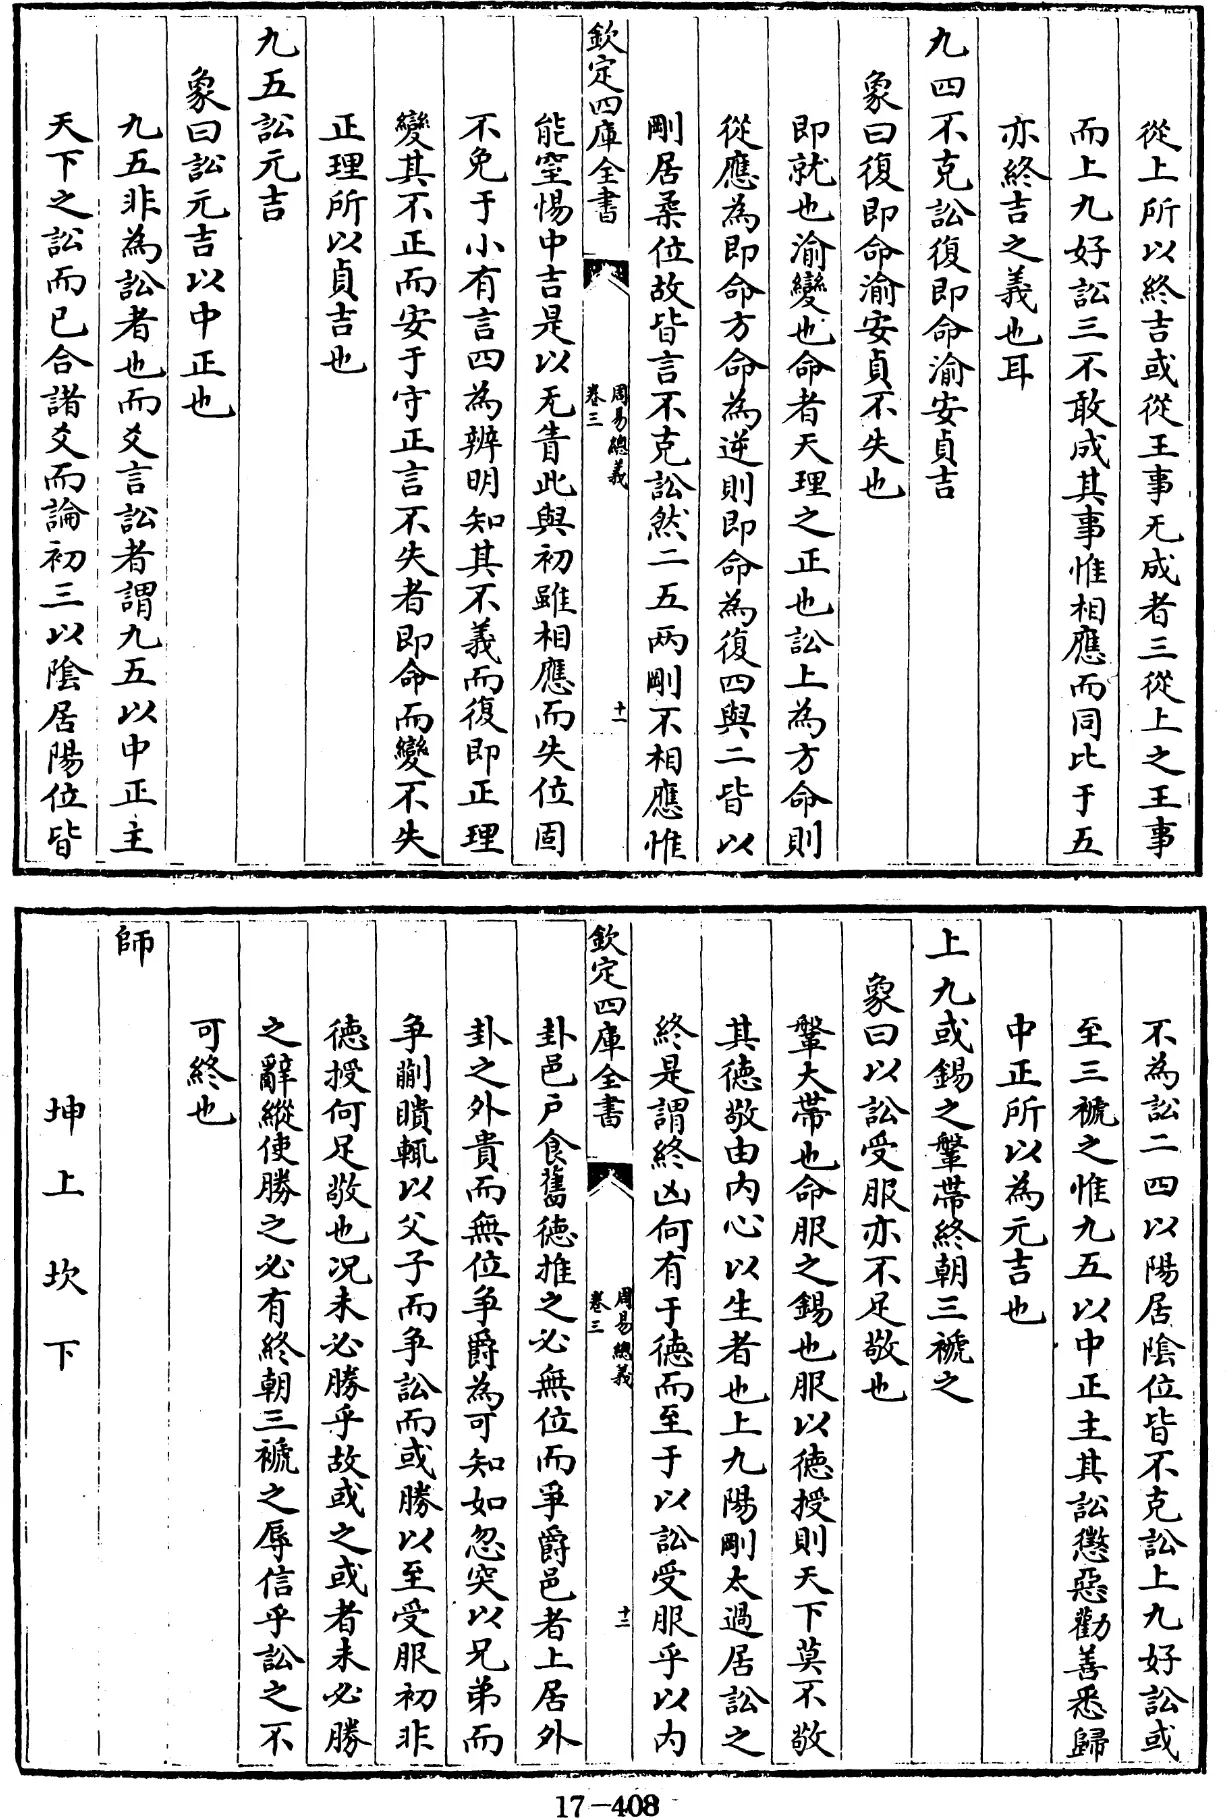 從上所以終吉或從王事无成者三從上之王事
而上九好訟三不敢成其事惟相應而同比于五
亦終吉之義也耳
九四不克訟復即命渝安貞吉
象曰復即命渝安貞不失也
即就也渝變也命者天理之正也訟上為方命則
從應為即命方命為逆則即命為復四與二皆以
剛居柔位故皆言不克訟然二五兩剛不相應惟
欽定四庫全書
周易總義
卷三
十一
能窒惕中吉是以无眚此與初雖相應而失位固
不免于小有言四為辨明知其不義而復即正理
變其不正而安于守正言不失者即命而變不失
正理所以貞吉也
九五訟元吉
象曰訟元吉以中正也
九五非為訟者也而爻言訟者謂九五以中正主
天下之訟而已合諸爻而論初三以陰居陽位皆
不為訟二四以陽居陰位皆不克訟上九好訟或
至三褫之惟九五以中正主其訟懲惡勸善悉歸
中正所以為元吉也
上九或錫之鞶帶終朝三褫之
象曰以訟受服亦不足敬也
鞶大帶也命服之錫也服以德授則天下莫不敬
其德敬由内心以生者也上九陽剛太過居訟之
終是謂終凶何有于德而至于以訟受服乎以内
欽定四庫全書
周易總義
卷三
十二
卦邑戶食舊德推之必無位而爭爵邑者上居外
卦之外貴而無位爭爵為可知如忽突以兄弟而
争蒯聵輒以父子而争訟而或勝以至受服初非
德授何足敬也况未必勝乎故或之或者未必勝
之辭縱使勝之必有終朝三褫之辱信乎訟之不
可終也
師
坤上坎下
17-408